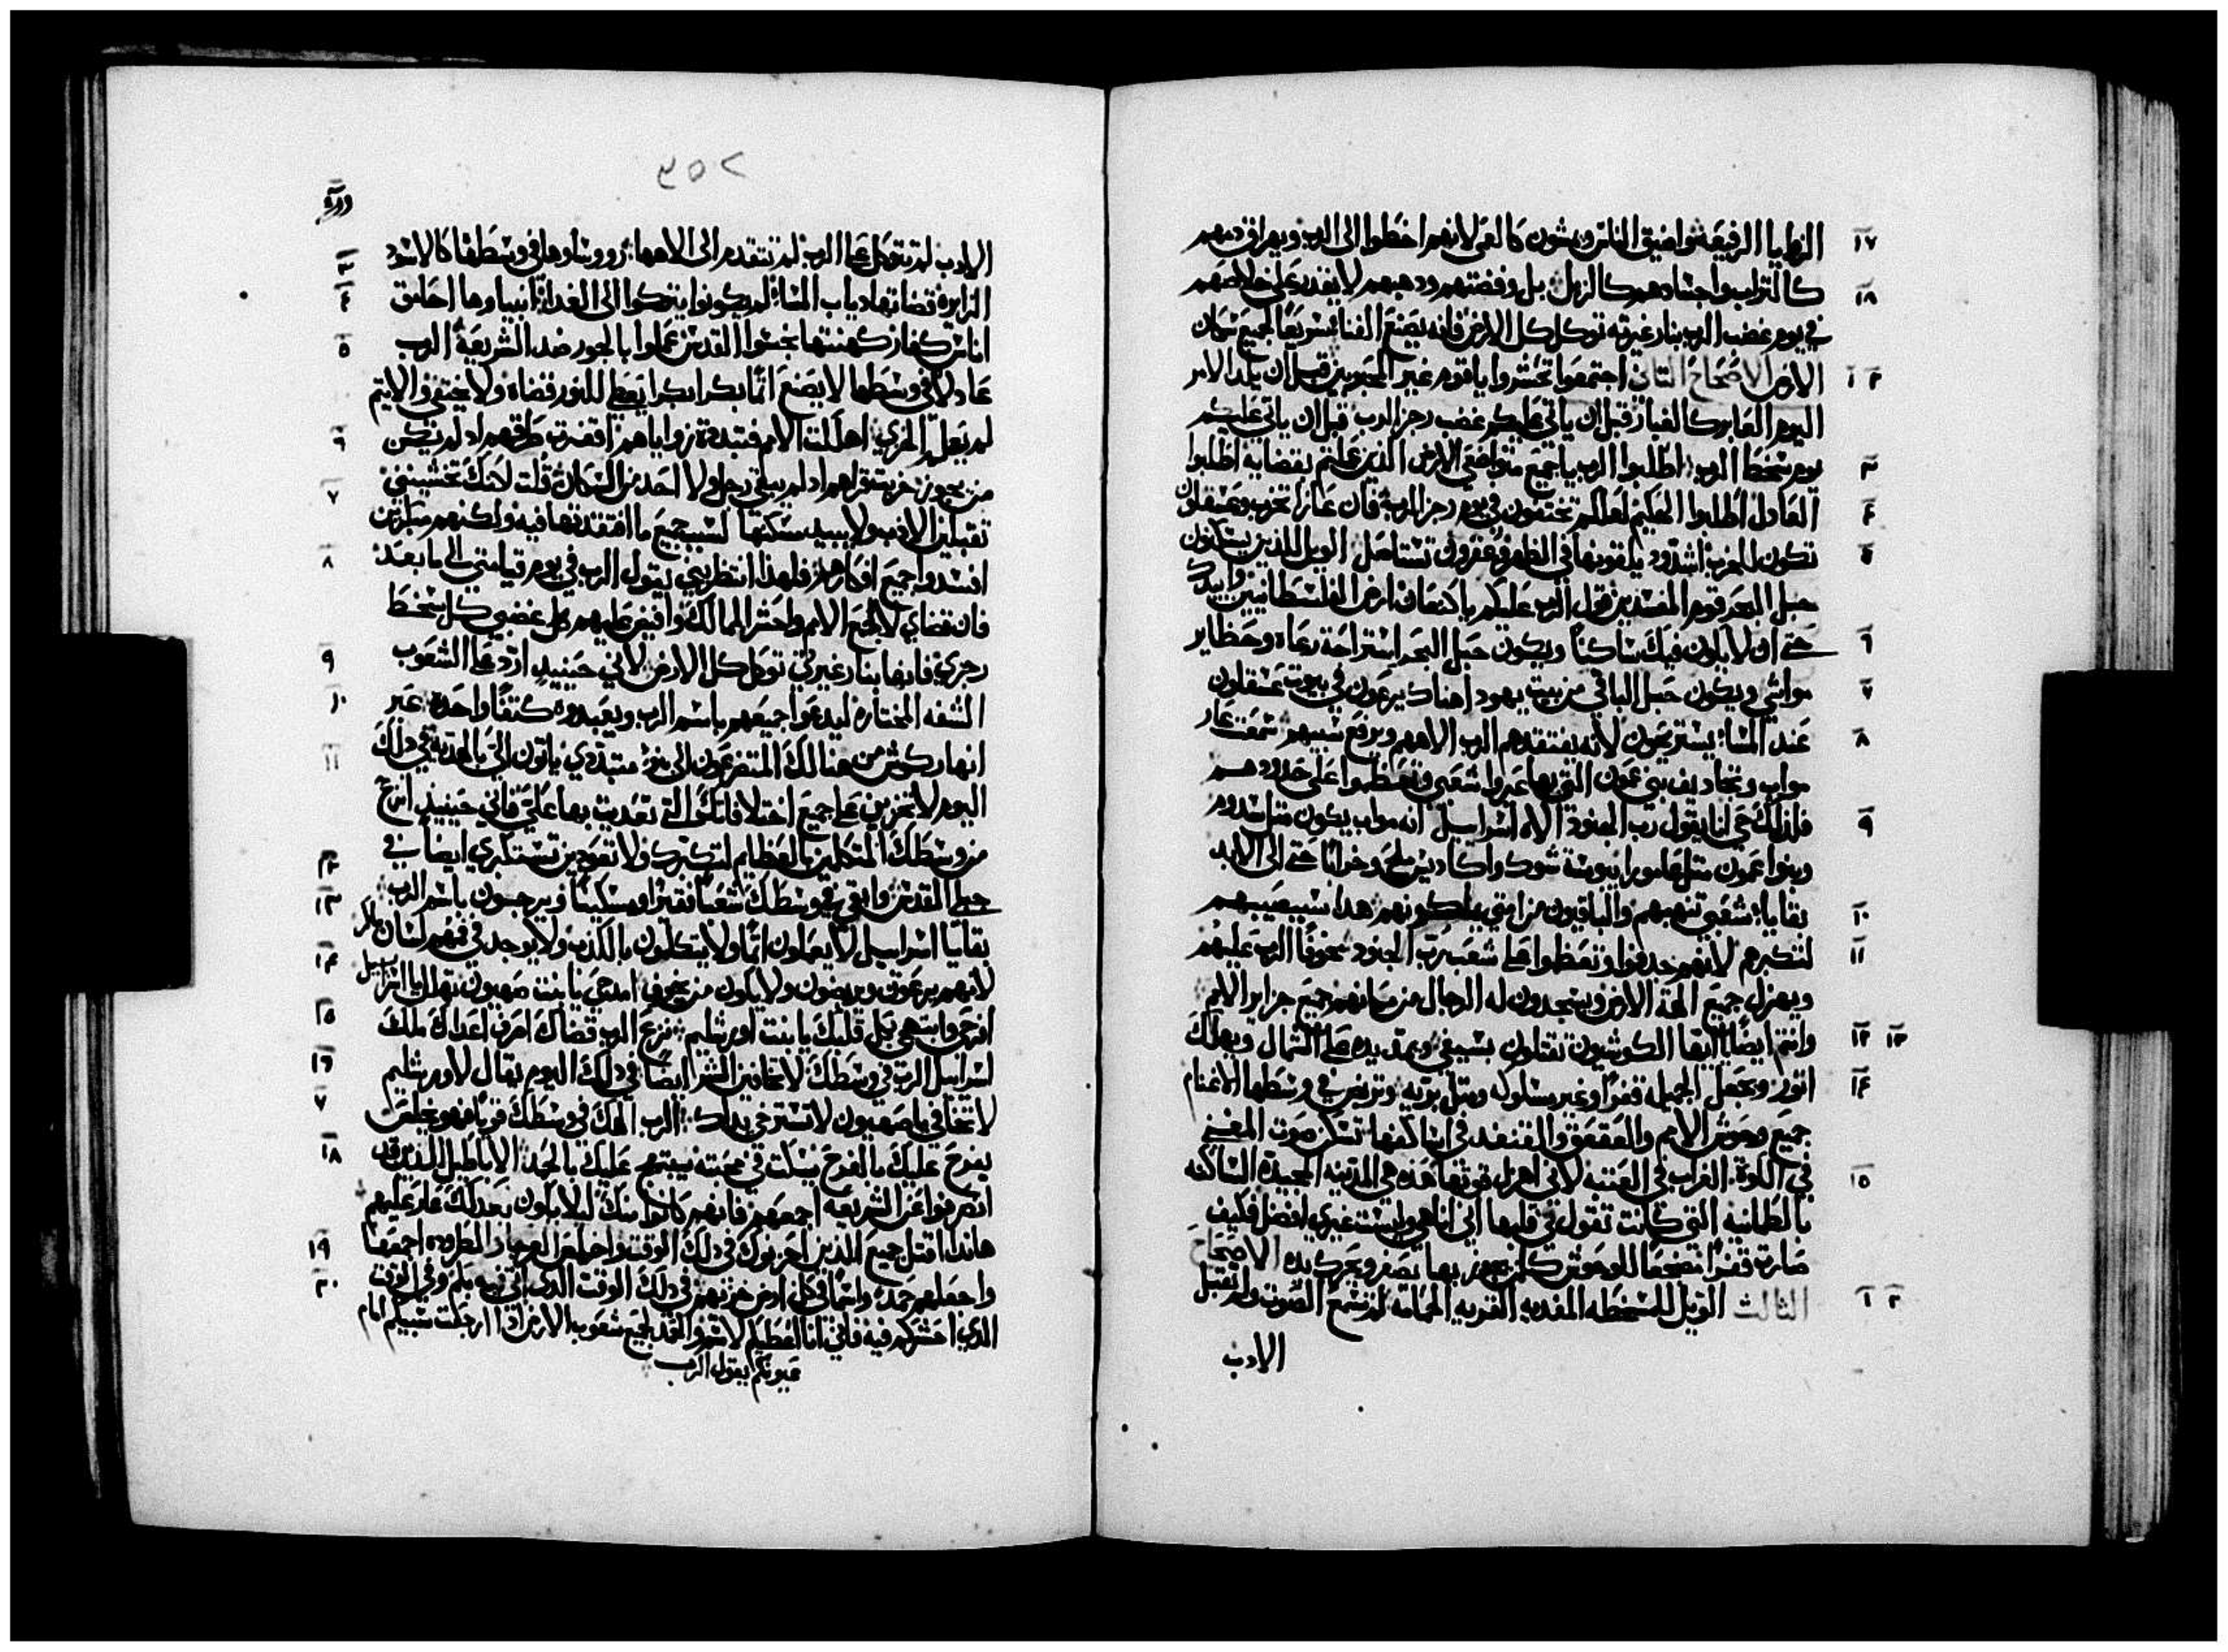 ١٧ الزوايا الرفيعه واضيق الناس ويمشون كالعمي لانهم اخطوا الى الرب ويهراق دمهم
١٨ كالتراب واجسادهم كالزبل بل وفضتهم ودهبهم لا تقدر على خلاصهم
في يوم غضب الرب بنار غيرته توكل كل الارض فانه يصنع الفنا بسريعًا لجميع سكان
٢ ١ الارض الاصحاح الثاني اجتمعوا تحشروا ياقوم غير المحبوبين قبل ان يلد الامر
اليوم العابر كالغبار قبل ان ياتي عليكم غضب رجز الرب قبل ان ياتي عليكم
٣ يوم سخط الرب اطلبوا الرب ياجميع متواضعي الارض الذين عملتم بقضايه اطلبوا
٤ العادل اطلبوا الحكيم لعلكم تختفون في يوم رجز الرب فان عازا تخرب وعسقلون
٥ تكون للخرب اشدود يلقونها في الظهر وعقرون تستاصل الويل للذين يسكنون
حبل البحر قوم المفسدين قول الرب عليكم ياكنعان ارض الفلسطانيين وابيدك
٦ حتى ان لا يكون فيك ساكنًا ويكون حبل البحر استراحة رعاه وحظاير
٧ مواشي ويكون حبل الباقي من بيت يهودا هناك يرعون في بيوت عسقلون
٨ عند المسا يستريحون لانه يفتقدهم الرب الاههم ويرفع سبيهم سمعت عار
مواب وتجاديف بني عمون التي بها عيروا شعبي وتعظموا على حدودهم
٩ فلذلك حي انا يقول رب الجنود الاه اسراييل انه مواب يكون مثل سدوم
وبنوا عمون مثل عامورا يبوسة شوك واكاديس ملح وخرابًا حتى الى الابد
١٠ بقايا شعبي تنهبهم والباقيون من امتي يملكونهم هدا سيصيبهم
١١ لتكبرهم لانهم جدفوا وتعظموا على شعب رب الجنود مخوفًا الرب عليهم
ويهزل جميع الهة الارض ويسجدون له الرجال من مكانهم جميع جزاير الامم
١٣ ١٢ وانتم ايضًا ايها الكوشيون تقتلون بسيفي ويمد يده على الشمال ويهلك
١٤ اتور ويجعل الجميله قفرًا وغير مسلوكه ومثل بريه وتربض في وسطها الاغنام
جميع وحوش الامم والعقعق والقنفد في اسكافها تسكن صوت المغني
١٥ في الكوة الغراب في العتبه لاني اهزل قوتها هذه هي المدينه المجيدة الساكنه
بالطمانينه التي كانت تقول في قلبها اني انا هي وليست غيري افضل فكيف
صارت قفرًا مضجعًا للوحوش كل من يجوز بها يصفر ويحرك يده الاصحاح
٣ ١ الثالث الويل للمسخطه المفديه القريه الحمامة لم تسمع الصوت ولم تقبل
الادب
٣٥٢
الادب لم تتوكل على الرب لم تتقدم الى الاهها
٣ رووساوها في وسطها كالاسود
٤ الزايره قضاتها دياب المسا لم يكونوا يتركوا الى الغداة انبياوها احلاق
٥ اناس كفار كهنتها نجسوا القدس عملوا بالجور ضد الشريعة الرب
عادلا في وسطها لا يصنع اثمًا بكرا بكرا يعطي للنور قضاه ولا يختفي والاثيم
٦ لم يعلم الخزي اهلكت الامم فتبددة زواياهم اقفرت طرقهم اد لم تكن
٧ من يجوز خربت قراهم اد لم يبقى رجل ولا احد من السكان قلت لعلك تخشيني
تقبلين الادب ولا يبيد مسكنها لسبب جميع ما افتقدتها فيه ولكنهم مبكرين
٨ افسدوا جميع افكارهم فلهذا انتظريني يقول الرب في يوم قيامتي الى ما بعد
فان قضاي لاجمع الامم واحشر الممالك وافيض عليهم كل غضبي كل سخط
٩ رجزي فانها بنار غيرتي توكل كل الارض لاني حينيد ارد على الشعوب
١٠ الشفه المختاره ليدعوا جميعهم باسم الرب ويعبدوه كتفًا واحدة عبر
١١ انهار كوش من هنالك المتضرعون الي بنو متبددي ياتون الي بالهديه في دلك
اليوم لا تخزين على جميع اختلافاتك التي تعديت بها علي فاني حينيد انزع
١٢ من وسطك المتكلمين بالعظايم لتكبرك ولا تعودين تستكبري ايضًا في
١٣ جبلي المقدس وابقي في وسطك شعبًا فقيرًا ومسكينًا ويرجون باسم الرب
بقايا اسراييل لا يعملون اثمًا ولا يتكلمون بالكذب ولا يوجد في فمهم لسان ماكر
١٤ لانهم يرعون ويربضون ولا يكون من يخوف امدحي يا بنت صهيون تهلل يا اسراييل
١٥ افرحي وابتهجي بكل قلبك يا بنت اورشليم نزع الرب قضاك اصرف اعداك ملك
١٦ اسراييل الرب في وسطك لا تخافين الشر ايضًا في دلك اليوم يقال لاورشليم
٧ لا تخافي يا صهيون لا تسترخي يداك الرب الهك في وسطك قويًا فهو يخلصك
١٨ يفرح عليك بالفرح يسكت في محبته يبتهج عليك بالحمد الاباطيل الذين قد
انصرفوا عن الشريعه اجمعهم فانهم كانوا منك ليلا يكون بعد لك عار عليهم
١٩ هاندا اقتل جميع الذين احزنوك في دلك الوقت واخلص العرجا والمطروده اجمعها
٢٠ واجعلهم حمدًا واسمًا في كل ارض خزيهم في دلك الوقت الذي اتي فيه بكم وفي الوقت
الذي احشركم فيه فاني انا اعطيكم لاسم والحمد لجميع شعوب الارض اذا ارجعت سبيكم امام
عيونكم يقول الرب